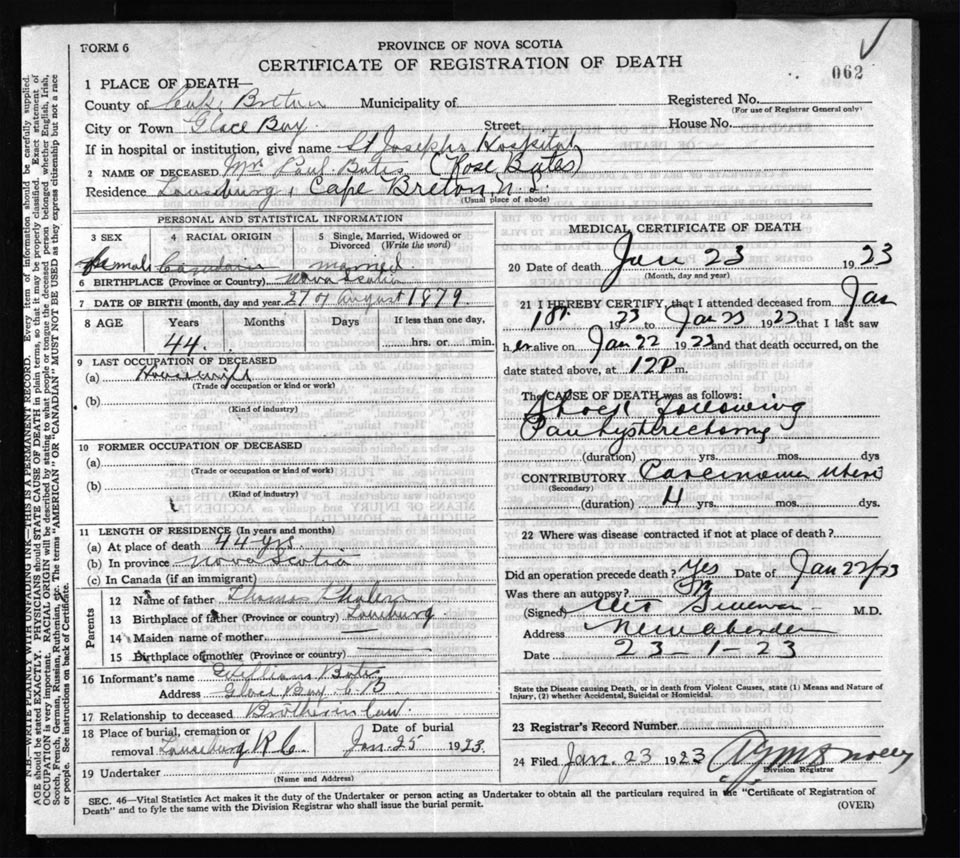 FORM 6
PROVINCE OF NOVA SCOTIA
CERTIFICATE OF REGISTRATION OF DEATH
062
1 PLACE OF DEATH—
County of Cape Breton Municipality of
Registered No.
(For use of Registrar General only)
City or Town Glace Bay Street House No.
If in hospital or institution, give name St Josephs Hospital
2 NAME OF DECEASED Mrs Paul Bates (Rose Bates)
Residence Louisburg, Cape Breton, N.S.
(Usual place of abode)
PERSONAL AND STATISTICAL INFORMATION
3 SEX 4 RACIAL ORIGIN 5 Single, Married, Widowed or Divorced (Write the word)
Female Canadian married
6 BIRTHPLACE (Province or Country) Nova Scotia
7 DATE OF BIRTH (month, day and year) 27 of August 1879
8 AGE Years Months Days If less than one day,
44 hrs. or min.
9 LAST OCCUPATION OF DECEASED
(a) Housewife
(Trade or occupation or kind or work)
(b)
(Kind of industry)
10 FORMER OCCUPATION OF DECEASED
(a)
(Trade or occupation or kind or work)
(b)
(Kind of industry)
11 LENGTH OF RESIDENCE (In years and months)
(a) At place of death 44 yrs.
(b) In province Nova Scotia
(c) In Canada (if an immigrant)
Parents
12 Name of father Thomas
13 Birthplace of father (Province or country) Louisburg
14 Maiden name of mother —
15 Birthplace of mother (Province or country) —
16 Informant's name William Bates
Address Glace Bay C B
17 Relationship to deceased Brother in law.
18 Place of burial, cremation or removal Louisburg R C Date of burial Jan. 25 1923.
19 Undertaker
(Name and Address)
MEDICAL CERTIFICATE OF DEATH
20 Date of death Jan 23 1923
(Month, day and year)
21 I HEREBY CERTIFY, that I attended deceased from Jan
18. 1923 to Jan 23 1923 that I last saw
her alive on Jan 22 1923 and that death occurred, on the
date stated above, at 12 P m.
The CAUSE OF DEATH was as follows:
Shock following
Panhysterectomy
(duration) yrs. mos. dys
CONTRIBUTORY Carcinoma Uteri
(Secondary)
(duration) 4 yrs. mos. dys.
22 Where was disease contracted if not at place of death?
Did an operation precede death? Yes Date of Jan 22/23
Was there an autopsy?
(Signed) M.D.
Address New Aberdeen
Date 23-1-23
State the Disease causing Death, or in death from Violent Causes, state (1) Means and Nature of
Injury, (2) whether Accidental, Suicidal or Homicidal.
23 Registrar's Record Number
24 Filed Jan. 23 1923
Division Registrar
SEC. 46—Vital Statistics Act makes it the duty of the Undertaker or person acting as Undertaker to obtain all the particulars required in the "Certificate of Registration of
Death" and to fyle the same with the Division Registrar who shall issue the burial permit.
(OVER)
N.B.—WRITE PLAINLY WITH UNFADING INK—THIS IS A PERMANENT RECORD. Every item of information should be carefully supplied.
AGE should be stated EXACTLY. PHYSICIANS should STATE CAUSE OF DEATH in plain terms, so that it may be properly classified. Exact statement of
OCCUPATION is very important. RACIAL ORIGIN will be described by stating to what people or tongue the deceased person belonged whether English, Irish,
Scotch, French, German, Russian, Ruthenian, etc. The terms "AMERICAN" OR "CANADIAN" MUST NOT BE USED as they express citizenship but not a race
or people. See instructions on back of Certificate.